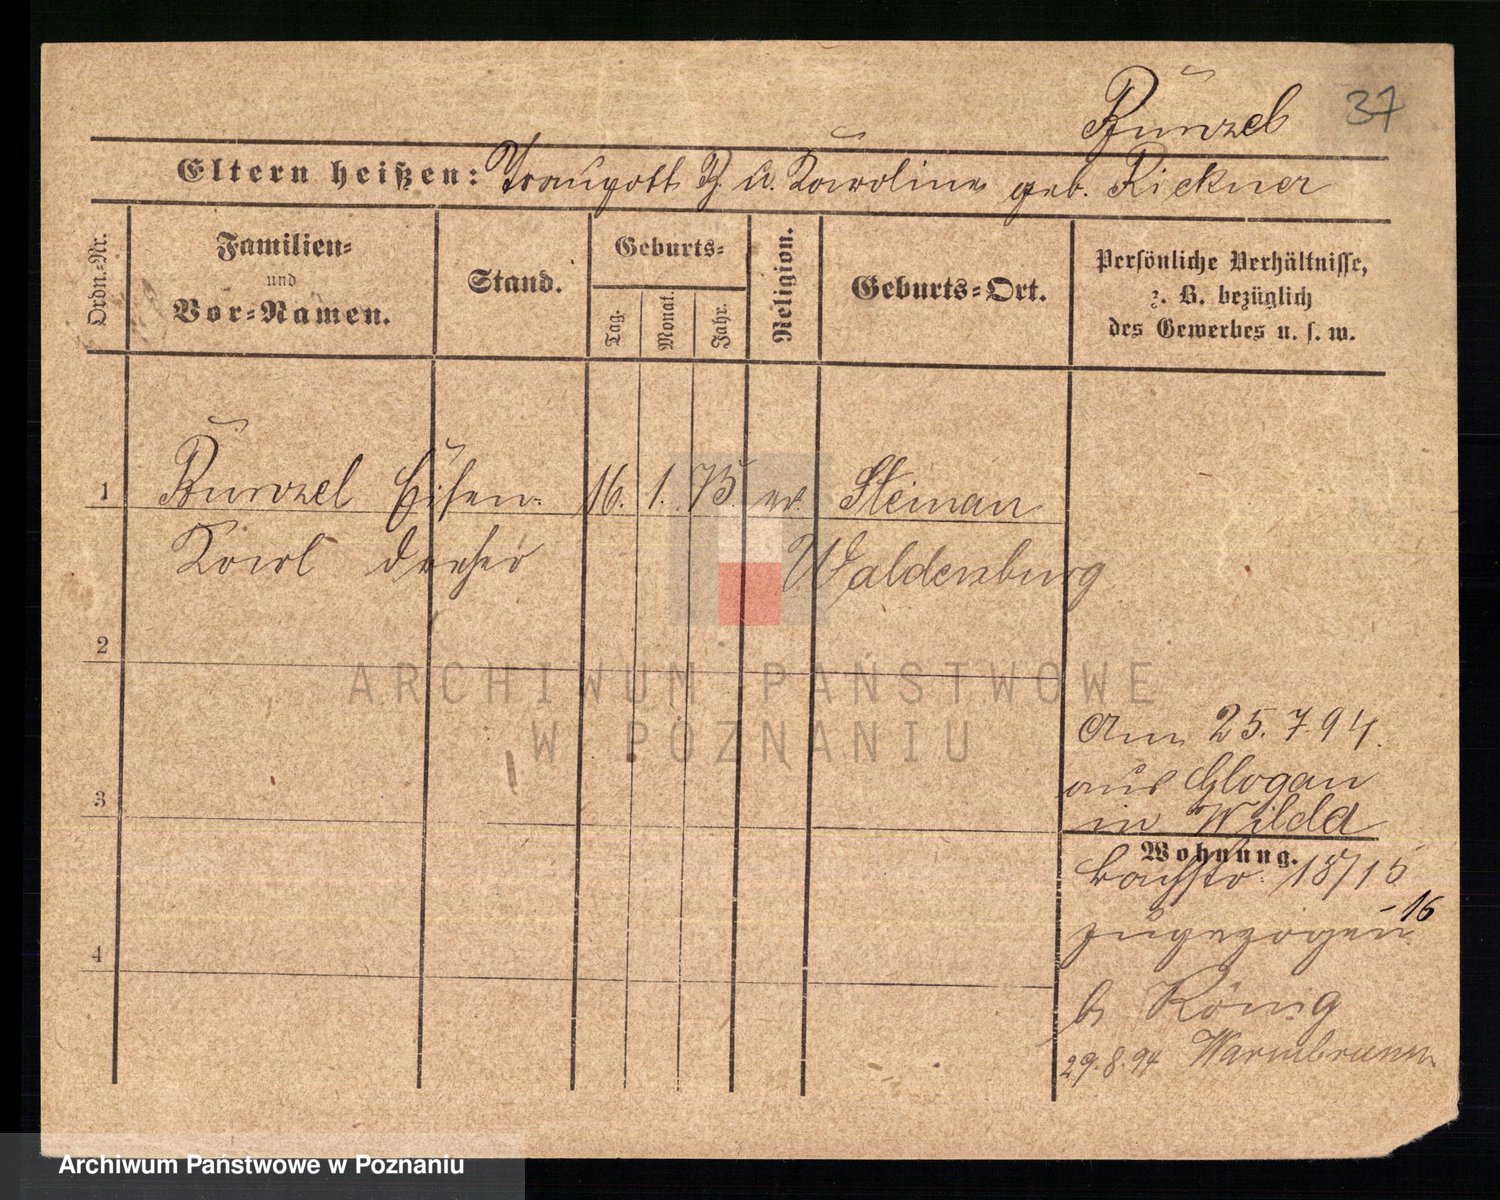 Bunzel 37
Eltern heißen: Traugott B. u. Karoline geb. Rickner
Ordn.-Nr.
Familien-
und
Vor-Namen.
Stand.
Geburts-
Tag.
Monat.
Jahr.
Religion.
Geburts-Ort.
Persönliche Verhältnisse,
z. B. bezüglich
des Gewerbes u. s. w.
1 Bunzel Eisen- 16. 1. 75. ev. Steinau
Karl dreher Waldenburg
2
ARCHIWUM PAŃSTWOWE
W POZNANIU
Am 25.7.94.
aus Glogau
3
in Wilda
Wohnung.
Bachstr. 18/15
-16
zugezogen
4
b. König
29.8.94 Warmbrunn
Archiwum Państwowe w Poznaniu